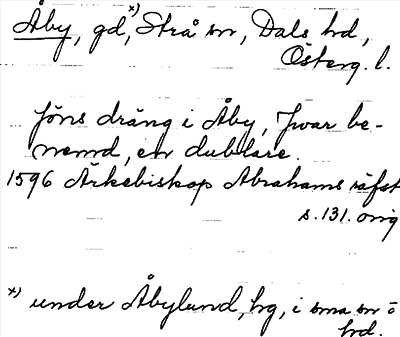 Åby, gd, x) Strå sn, Dals hd,
Österg. l.
Jöns dräng i Åby, Jwar be-
nemd, en dubblare.
1596 Ärkebiskop Abrahams räfst
s. 131. orig
x) under Åbylund, hg, i sma sn o
hd.